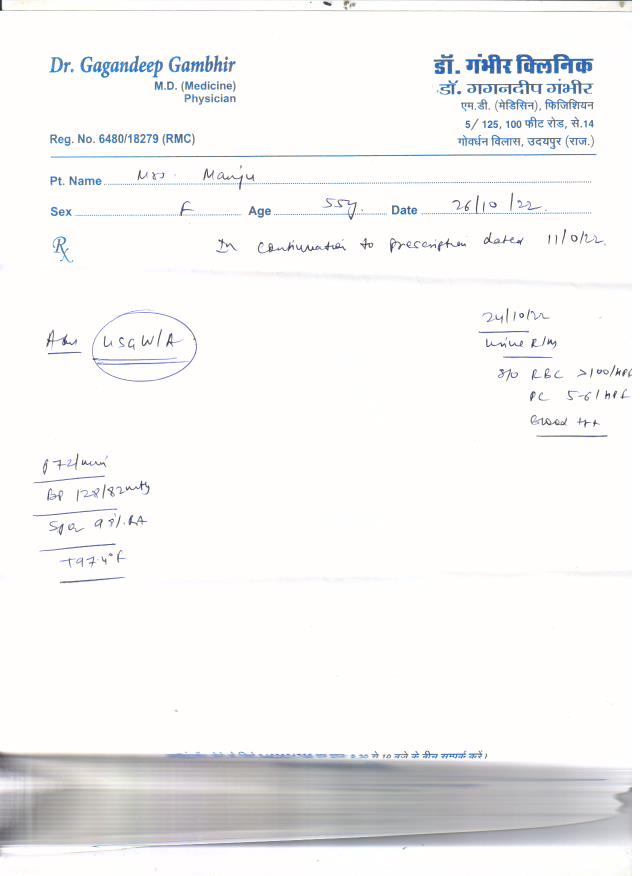 Dr. Gagandeep Gambhir
M.D. (Medicine)
Physician
Reg. No. 6480/18279 (RMC)
डॉ. गंभीर क्लिनिक
डॉ. गगनदीप गंभीर
एम.डी. (मेडिसिन), फिजिशियन
5/ 125, 100 फीट रोड, से.14
गोवर्धन विलास, उदयपुर (राज.)
Pt. Name Mrs. Manju
Sex F Age 55y. Date 26/10/22.
Rx In continuation to prescription dated 11/0/22.
Adv USG W/A
24/10/22
Urine R/M
S/o RBC >100/HPF
PC 5-6/HPF
Blood +++
P 72/min
BP 128/82
SpO2 98%.RA
T97.4°F
बजे के बीच सम्पर्क करें।